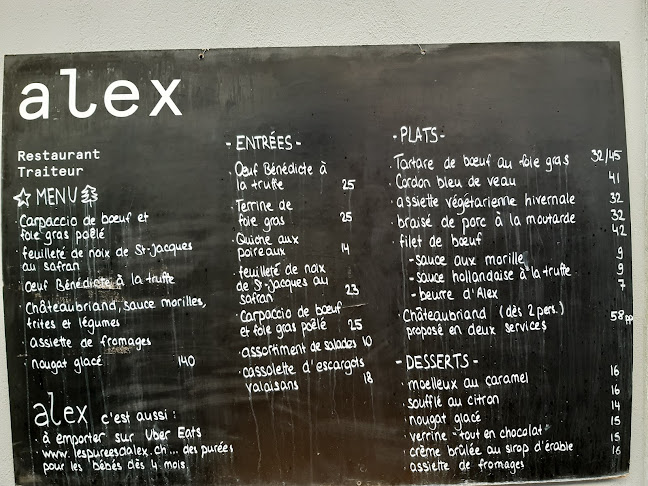 alex
Restaurant
Traiteur
MENU
· Carpaccio de bœuf et
foie gras poêlé
· feuilleté de noix de St-Jacques
au safran
· Œuf Bénédicte à la truffe
· Châteaubriand, sauce morilles,
frites et légumes
· assiette de fromages
· nougat glacé 140
alex c'est aussi :
· à emporter sur Uber Eats
· www.lespureesdalex.ch ... des purées
pour les bébés dès 4 mois.
- ENTRÉES -
· Œuf Bénédicte à
la truffe 25
· Terrine de
foie gras 25
· Quiche aux
poireaux 14
· feuilleté de noix
de St-Jacques au
safran 23
· carpaccio de bœuf
et foie gras poêlé 25
· assortiment de salades 10
· cassolette d'escargots
valaisans 18
- PLATS -
· Tartare de bœuf au foie gras 32/45
· Cordon bleu de veau 41
· assiette végétarienne hivernale 32
· braisé de porc à la moutarde 32
· filet de bœuf 42
- sauce aux morille 9
- sauce hollandaise à la truffe 9
- beurre d'Alex 7
· Châteaubriand (dès 2 pers.) 58pp
proposé en deux services
- DESSERTS -
· moelleux au caramel 16
· soufflé au citron 16
· nougat glacé 14
· verrine "tout en chocolat" 15
· crème brûlée au sirop d'érable 15
· assiette de fromages 16